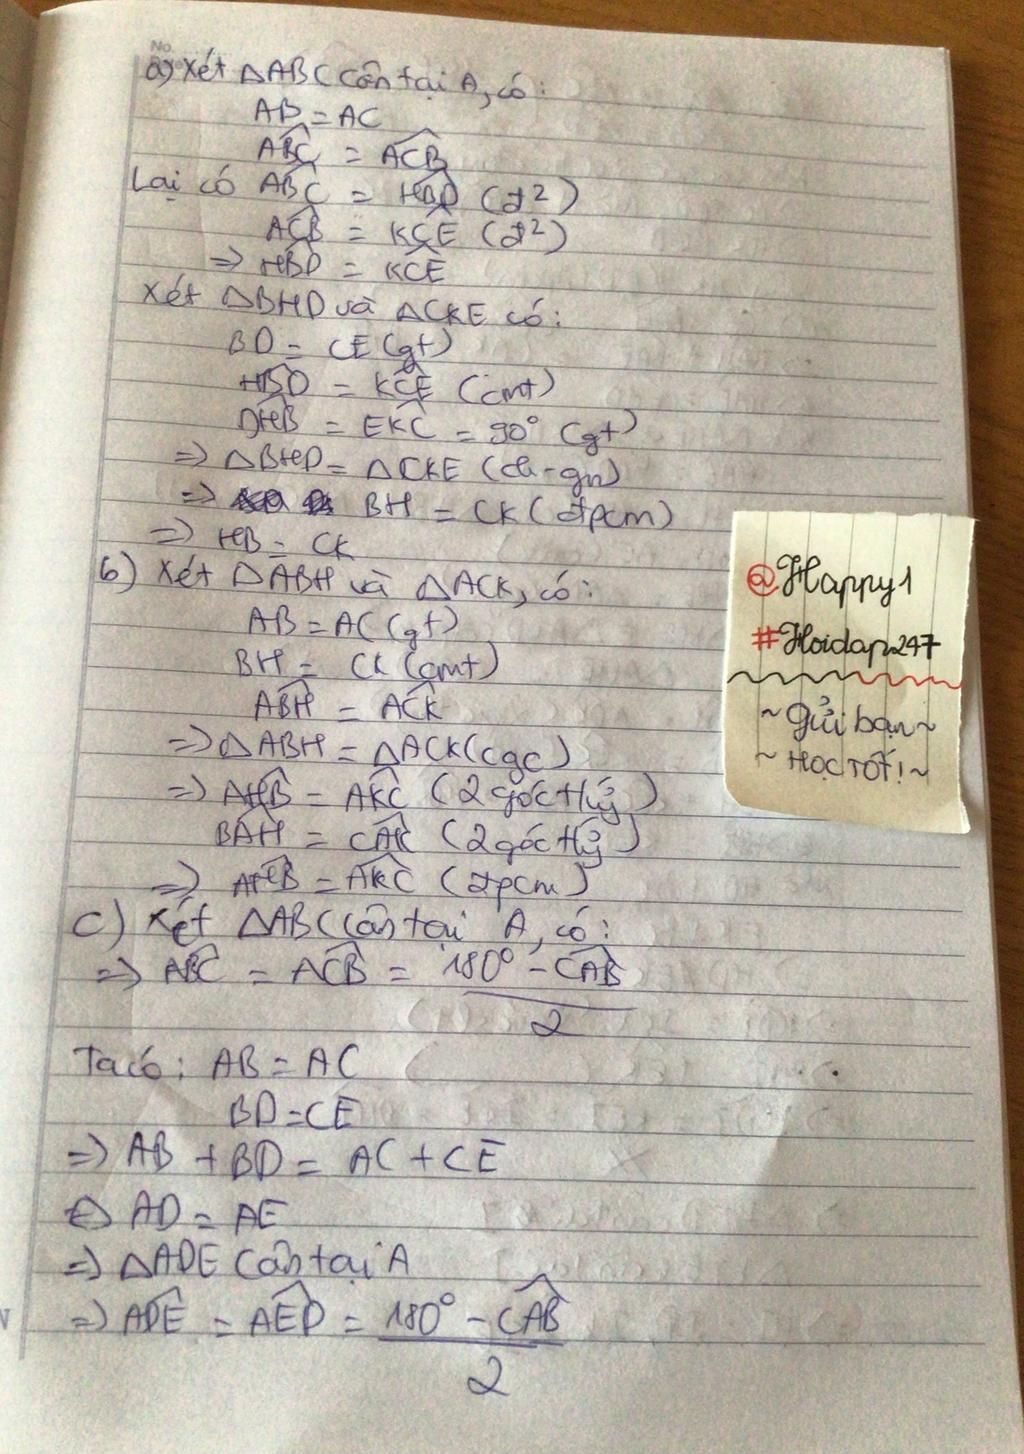 No.
a) Xét ΔABC cân tại A, có:
AB = AC
ABC^ = ACB^
Lại có ABC^ = HBD^ (đ²)
ACB^ = KCE^ (đ²)
=> HBD^ = KCE^
Xét ΔBHD và ΔCKE có:
BD = CE (gt)
HBD^ = KCE^ (cmt)
DHB^ = EKC^ = 90° (gt)
=> ΔBHD = ΔCKE (ch-gn)
=> BH = CK (đpcm)
=> HB = CK
b) Xét ΔABH và ΔACK, có:
AB = AC (gt)
BH = CK (cmt)
ABH^ = ACK^
=> ΔABH = ΔACK (cgc)
=> AHB^ = AKC^ (2 góc tử)
BAH^ = CAK^ (2 góc tử)
=> AHB^ = AKC^ (đpcm)
c) Xét ΔABC cân tại A, có:
=> ABC^ = ACB^ = 180° - CAB^
2
Ta có: AB = AC
BD = CE
=> AB + BD = AC + CE
<=> AD = AE
=> ΔADE cân tại A
=> ADE^ = AED^ = 180° - CAB^
2
@Happy1
#Hoidap247
~ Gửi bạn ~
~ HỌC TỐT! ~